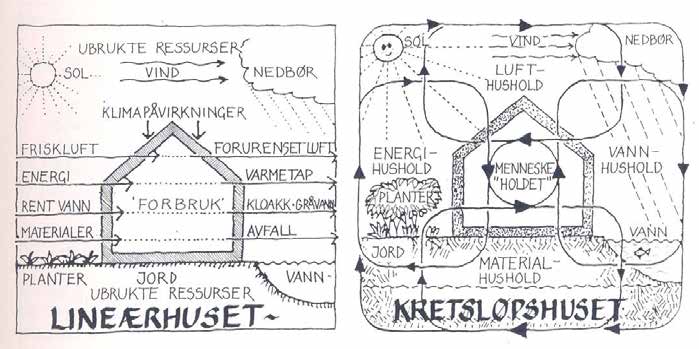 UBRUKTE RESSURSER
SOL
VIND
NEDBØR
KLIMAPÅVIRKNINGER
FRISKLUFT
FORURENSET LUFT
ENERGI
VARMETAP
RENT VANN
'FORBRUK'
KLOAKK-GRÅVANN
MATERIALER
AVFALL
PLANTER
JORD
VANN-
UBRUKTE RESSURSER
LINEÆRHUSET~
SOL
VIND
NEDBØR
LUFT-
HUSHOLD
ENERGI-
HUSHOLD
MENNESKE
"HOLDET"
VANN-
HUSHOLD
PLANTER
JORD
VANN
MATERIAL-
HUSHOLD
KRETSLØPSHUSET